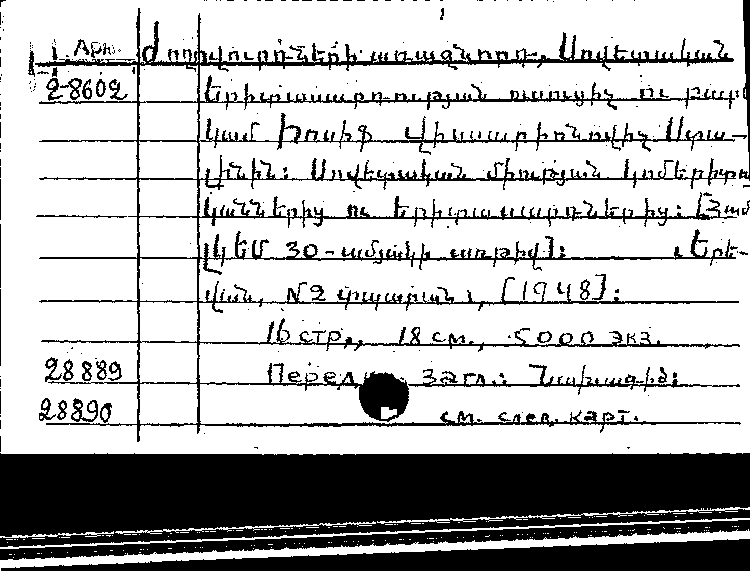 Арм. Ժողովուրդների առաջնորդ, Սովետական
2-8602 երիտասարդության ուսուցիչ ու բարե
կամ Իոսիֆ Վիսսարիոնովիչ Ստա-
լինին: Սովետական միության կոմերիտա
կաններից ու երիտասարդներից: [Համ
ԼԿԵՄ 30-ամյակի առթիվ]: Երե-
վան, №2 տպարան, [1948]:
16 стр., 18 см., 5000 экз.
28889 Перед загл.: Նախագիծ:
28890 см. след. карт.